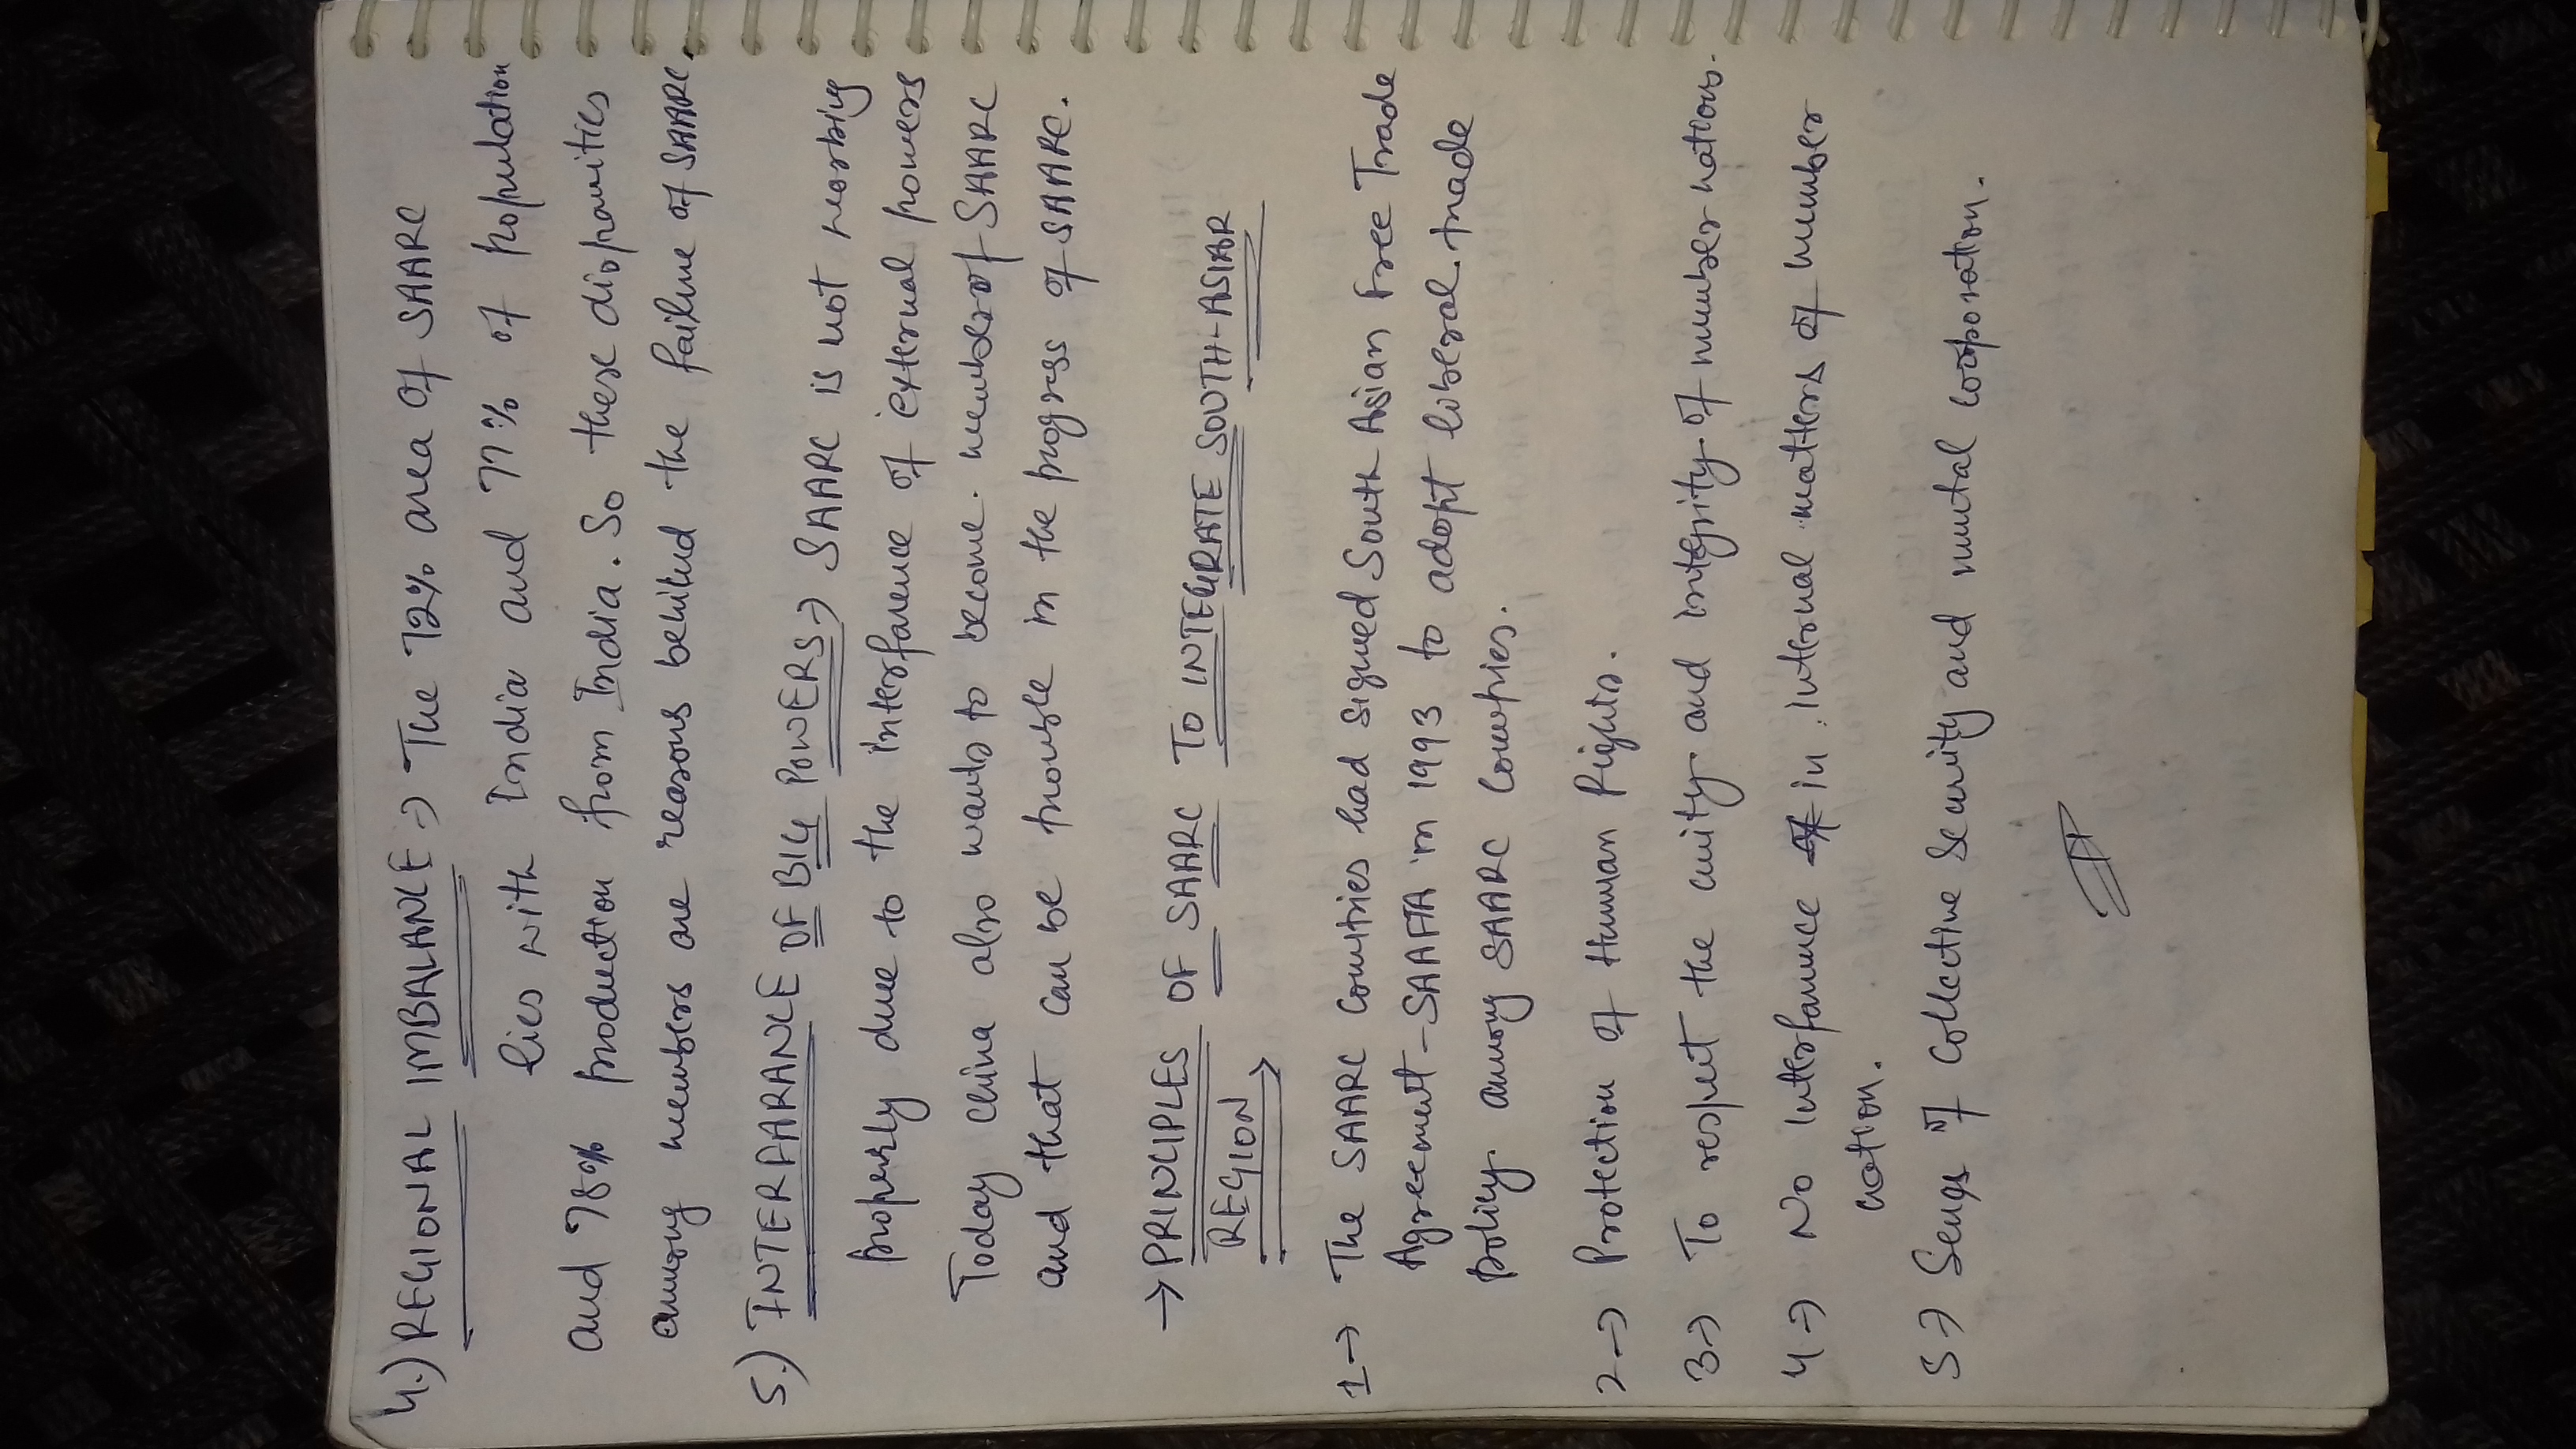 4.) REGIONAL IMBALANCE → The 72% area of SAARC
lies with India and 77% of population
and 78% production from India. So these disparities
among members are reasons behind the failure of SAARC.
5.) INTERFARANCE OF BIG POWERS → SAARC is not working
properly due to the interfarence of external powers
Today China also wants to become member of SAARC
and that can be trouble in the progress of SAARC.
→ PRINCIPLES OF SAARC TO INTEGRATE SOUTH-ASIAN
REGION →
1 → The SAARC Countries had signed South Asian Free Trade
Agreement - SAFTA in 1993 to adopt liberal trade
policy among SAARC Countries.
2 → Protection of Human Rights.
3 → To respect the unity and integrity of member nations.
4 → No interfarence in internal matters of member
nation.
5 → Sense of Collective Security and mutual cooporation.